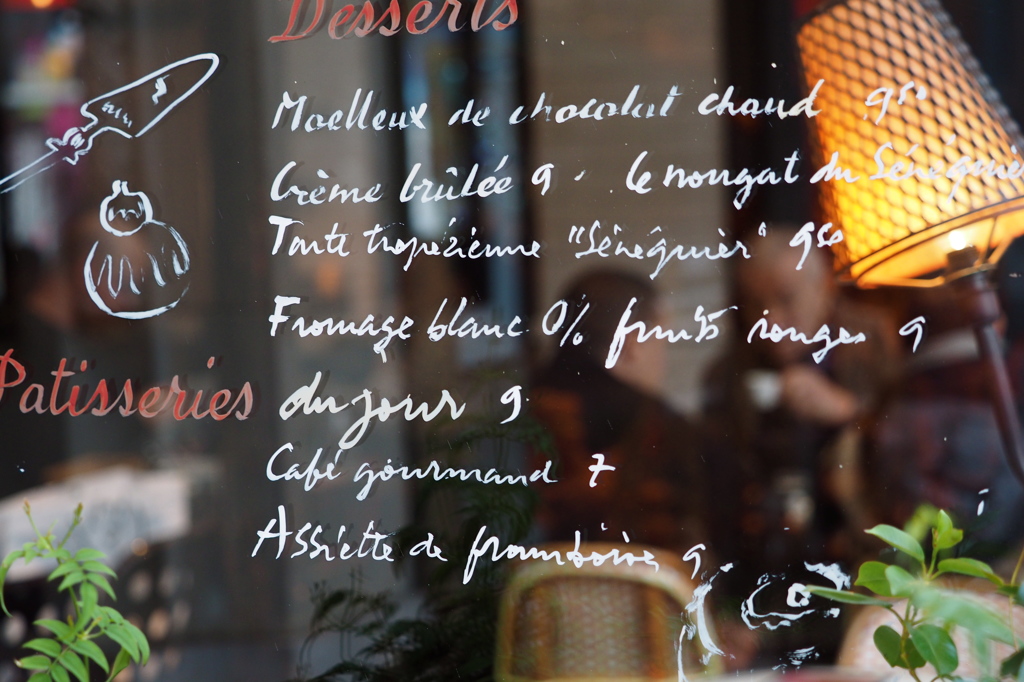 Desserts
Moelleux de chocolat chaud 9,50
Crème brûlée 9 . Le nougat du Sénéquier
Tarte tropézienne "Sénéquier" 9,50
Fromage blanc 0% fruits rouges 9
Patisseries du jour 9
Café gourmand 7
Assiette de framboise 9